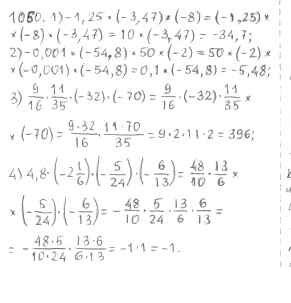 1060. 1) -1,25 · (-3,47) × (-8) = (-1,25) ×
× (-8) · (-3,47) = 10 × (-3,47) = -34,7;
2) -0,001 × (-54,8) × 50 × (-2) = 50 × (-2) ×
× (-0,001) · (-54,8) = 0,1 × (-54,8) = -5,48;
3) 9/16 · 11/35 · (-32) · (-70) = 9/16 · (-32) · 11/35 ×
× (-70) = 9·32/16 · 11·70/35 = 9·2·11·2 = 396;
4) 4,8 · (-2 1/6) · (-5/24) · (-6/13) = 48/10 · 13/6 ×
× (-5/24) · (-6/13) = -48/10 · 5/24 · 13/6 · 6/13 =
= -48·5/10·24 · 13·6/6·13 = -1·1 = -1.